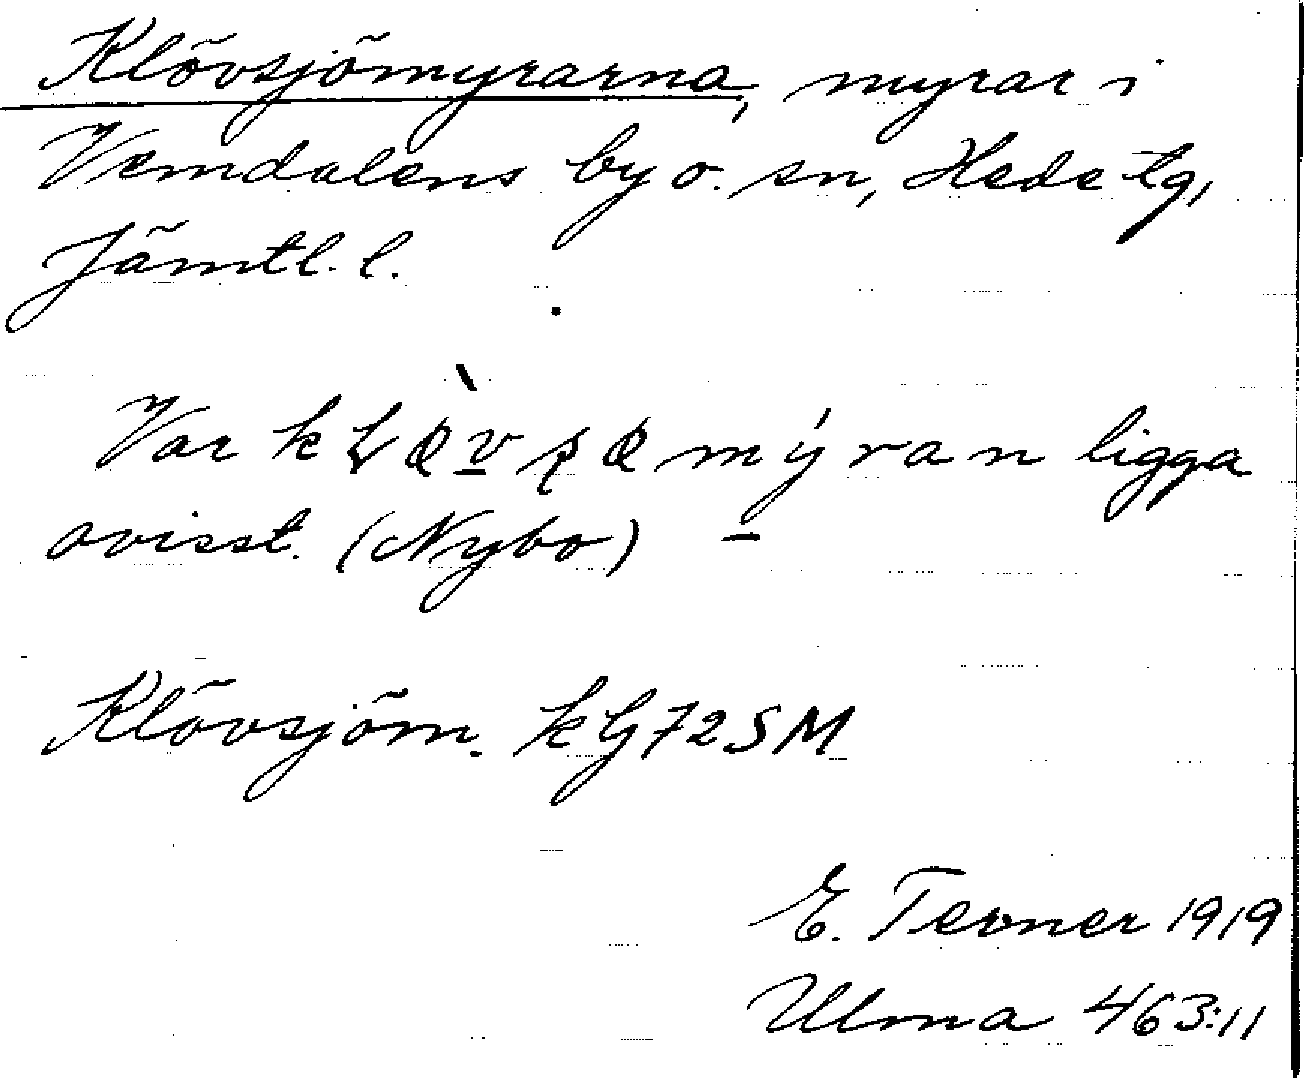 Klövsjömyrarna, myrar i
Vemdalens by o. sn, Hede tg,
Jämtl. l.
Var ligga
ovisst. (Nybo)
Klövsjöm.
E. Tevner 1919
Ulma 463:11